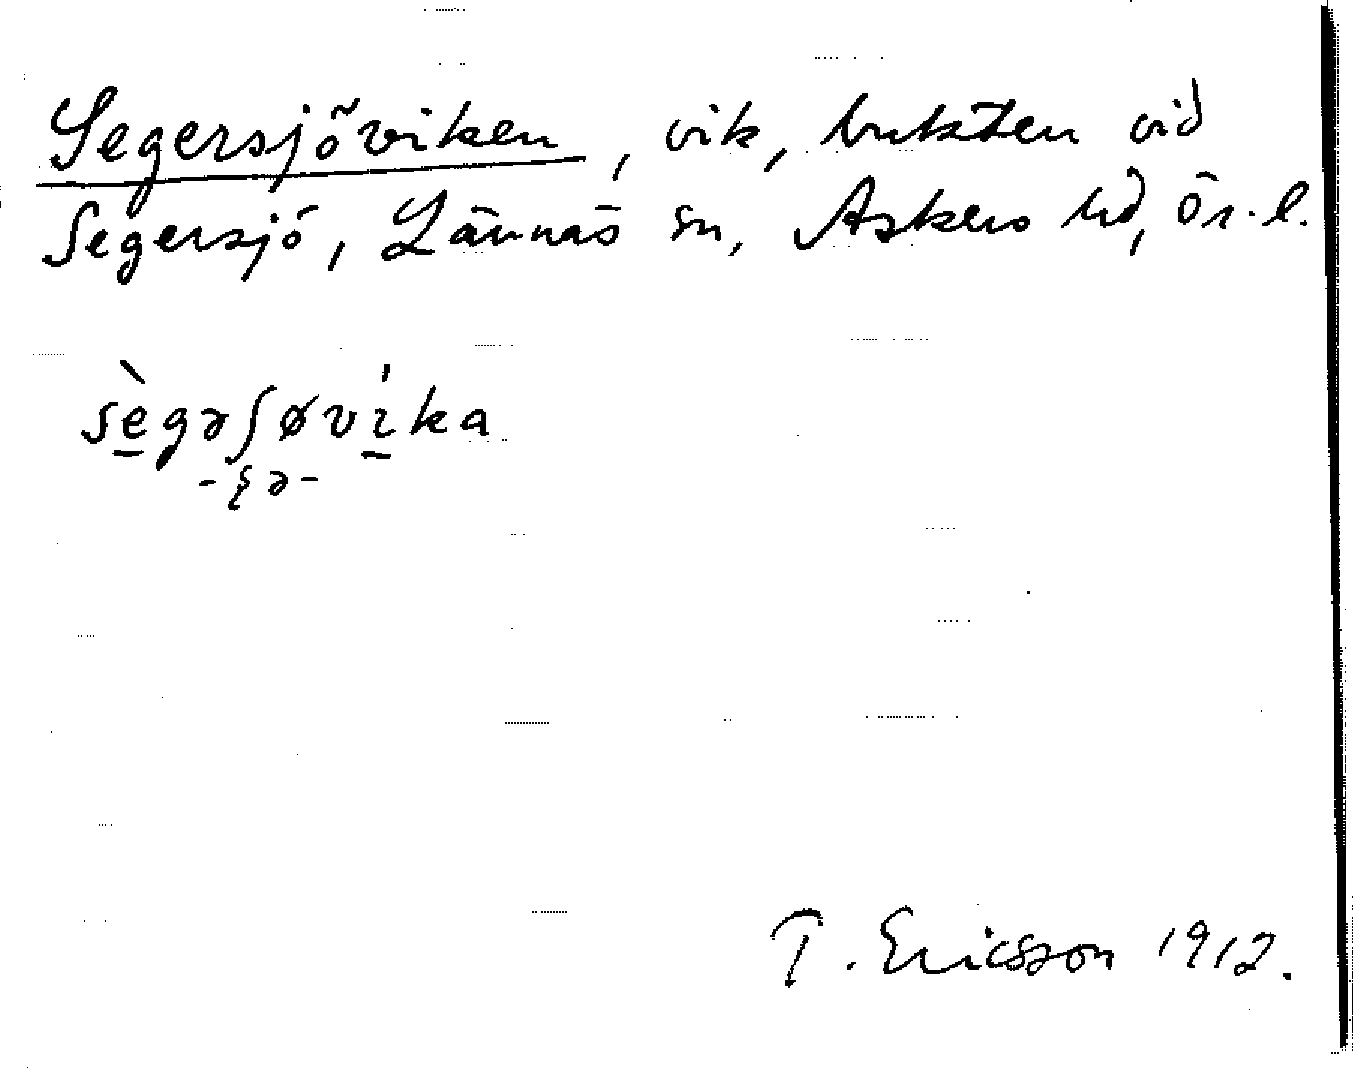 Segersjöviken, vik, bukten vid
Segersjö, Lännäs sn, Askers hd, Ör. l.
sègəʃøvíka
-ʂə-
T. Ericsson 1912.